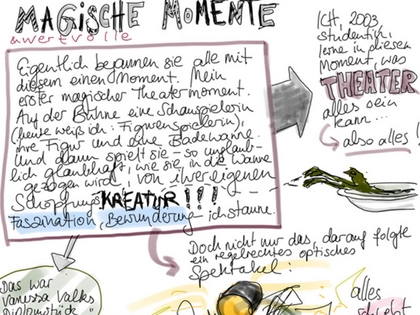 MAGISCHE MOMENTE
& wertvolle
Eigentlich begannen sie alle mit
diesem einen Moment. Mein
erster magischer Theatermoment.
Auf der Bühne eine Schauspielerin
(heute weiß ich: Figurenspielerin),
ihre Figur und eine Badewanne.
Und dann spielt sie – so unglaub-
lich glaubhaft, wie sie, in die Wanne
gezogen wird, von ihrer eigenen
Schöpfungs KREATUR!!!
Faszination, Bewunderung, ich staune.
ICH, 2003,
studentin
lerne in diesem
Moment, was
THEATER
alles sein
kann...
also alles!
Doch nicht nur das, darauf folgte
ein regelrechtes optisches
Spektakel:
Das war
Vanessa Valks
Diplomstück
alles